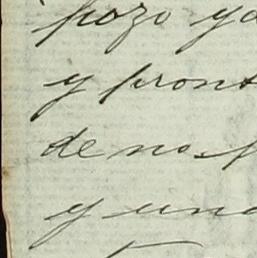 pozo ya
y pront
de no p
y una